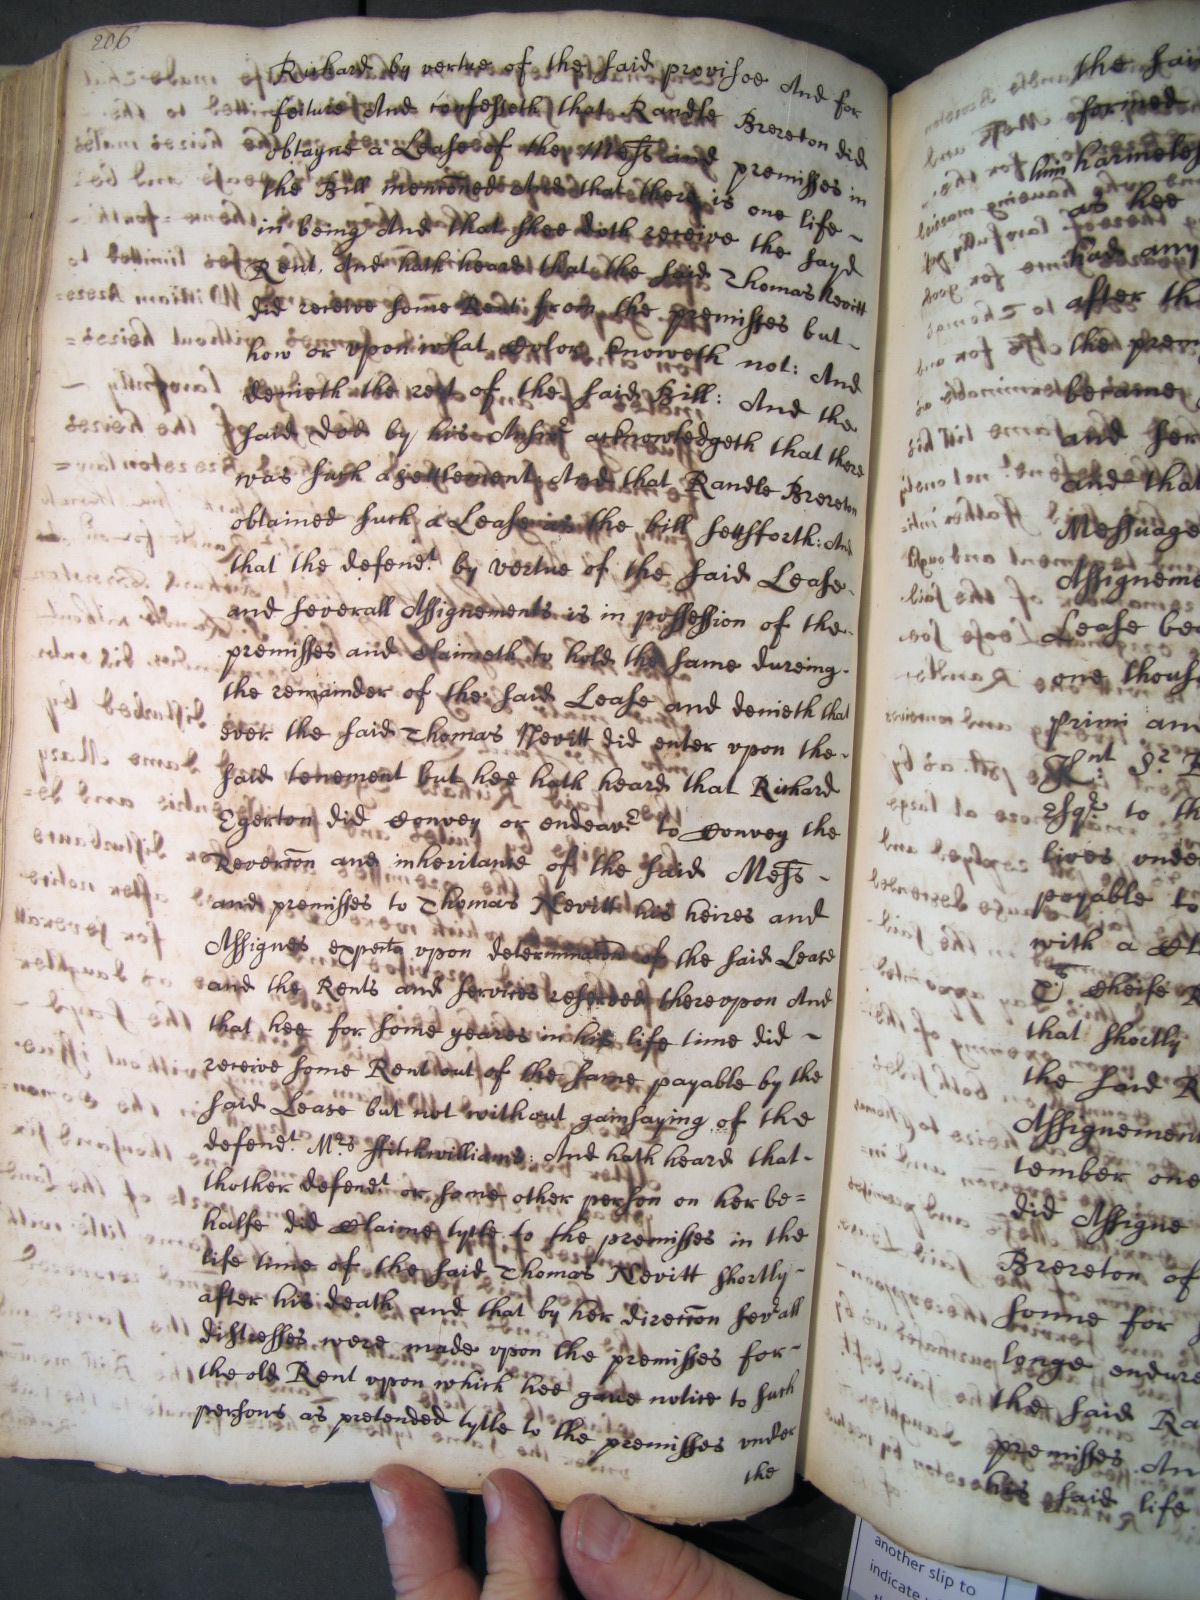 206
Richard by vertue of the said provisoe And for
feiture And confesseth that Randle Brereton did
obtayne a Lease of the Mess and premisses in
the Bill menconed And that there is one life ~
in being And that shee doth receive the sayd
Rent. And hath heard that the said Thomas Nevitt
did receive some Rent from the premisses but ~
how or vpon what Color knoweth not: And
denieth the rest of the said Bill: And the
said Dod by his Answr acknowledgeth that there
was such a settlement: And that Randle Brereton
obtained such a Lease as the bill settsforth: And
that the defendt by vertue of the said Lease
and severall Assignements is in possession of the-
premisses and Claimeth to hold the same dureing-
the remainder of the said Lease and denieth that
ever the said Thomas Nevitt did enter vpon the-
said tenement but hee hath heard that Richard
Egerton did Convey or endeavr to Convey the
Revercon and inheritance of the said Mess -
and premisses to Thomas Nevitt his heires and
Assignes expectt vpon determinacon of the said Lease
and the Rents and services reserved therevpon And
that hee for some yeares in his life time did ~
receive some Rent out of the same payable by the
said Lease but not without gainsaying of the
defendt Mrs ffitchwilliams: And hath heard that-
thother defendt or some other person on her be=
halfe did Claime tytle to the premisses in the
life time of the said Thomas Nevitt shortly-
after his death and that by her direccon sevrall
distresses were made vpon the premisses for-
the old Rent vpon which hee gave notice to such
persons as pretended tytle to the premisses vnder
the
the said
formed
him harmeles
as hee
had any
after th
the prem
became
and
and that
Messuage
Assigneme
Lease be
one thous
primi an
Knt Sr
Esqr to th
lives vnde
payable to
with a
cheife R
that shortly
the said R
Assignement
tember one
did Assigne
Brereton of
some for
longe endure
the said Ra
premisses An
his said life
another slip to
indicate